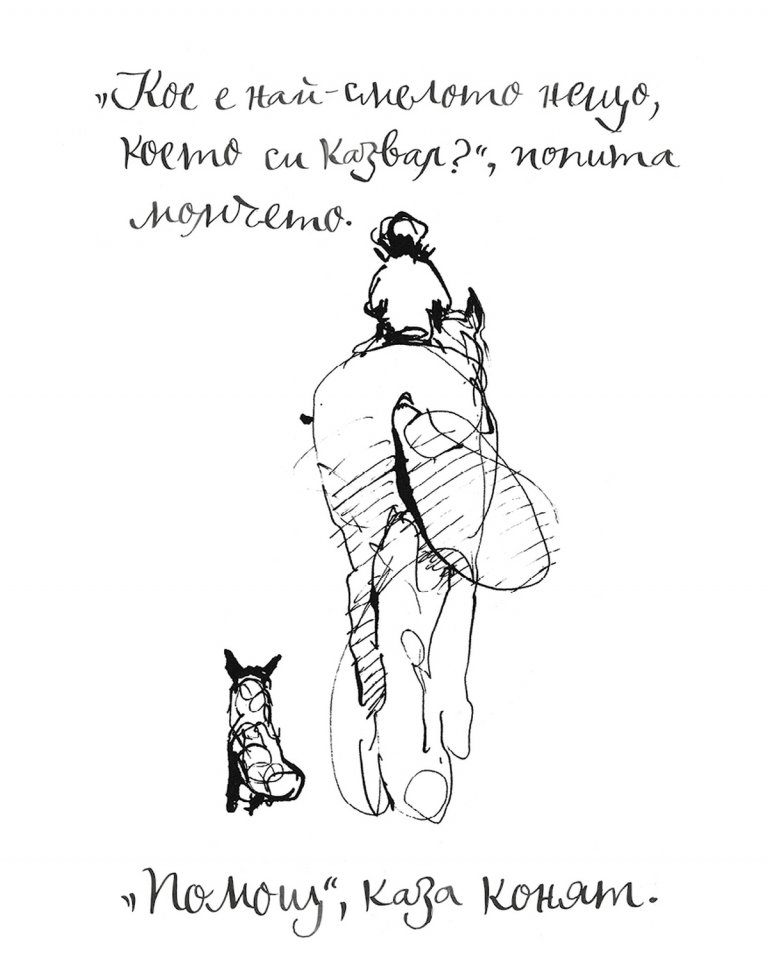 „Кое е най-смелото нещо,
което си казвал?“, попита
момчето.
„Помощ“, каза конят.